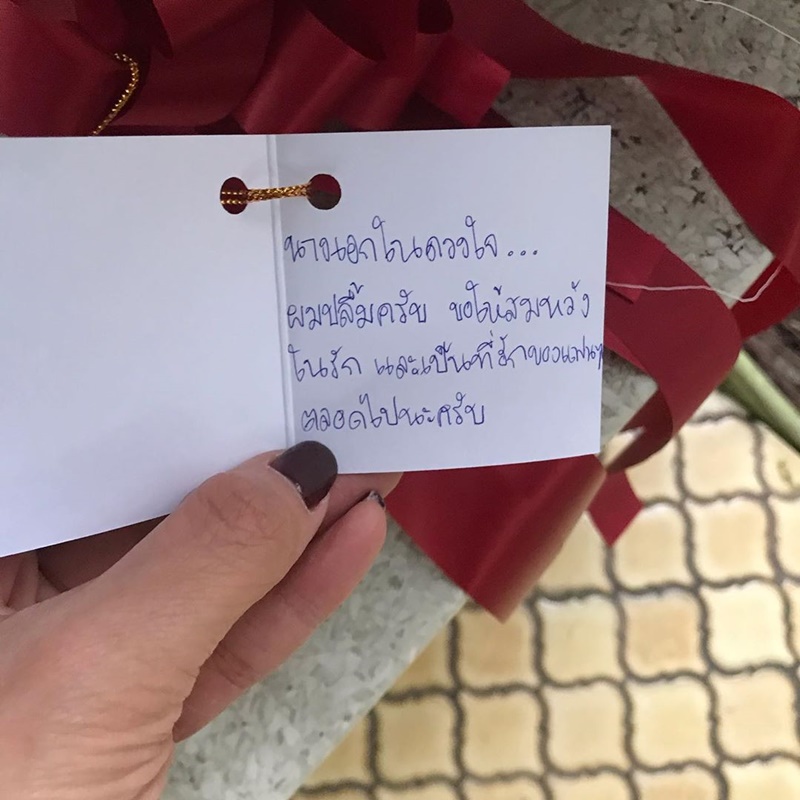 นางเอกในดวงใจ...
ผมปลื้มครับ ขอให้สมหวัง
ในรัก และเป็นที่รักของแฟนๆ
ตลอดไปนะครับ